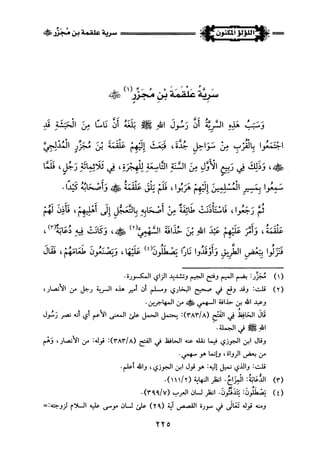 سرية علقمة بن مجزز ﷺ
اللؤلؤ المكنون
سَرِيَّةُ عَلْقَمَةَ بْنِ مُجَزِّزٍ (١) ﷺ
وَسَبَبُ هَذِهِ السَّرِيَّةِ أَنَّ رَسُولَ اللهِ ﷺ بَلَغَهُ أَنَّ نَاسًا مِنَ الْحَبَشَةِ قَدِ
اجْتَمَعُوا بِالْقُرْبِ مِنْ سَوَاحِلِ جُدَّةَ، فَبَعَثَ إِلَيْهِمْ عَلْقَمَةَ بْنَ مُجَزِّرٍ الْمُدْلِجِيَّ
ﷺ، وَذَلِكَ فِي رَبِيعٍ الْأَوَّلِ مِنَ السَّنَةِ التَّاسِعَةِ لِلْهِجْرَةِ، فِي ثَلَاثِمِائَةِ رَجُلٍ، فَلَمَّا
سَمِعُوا بِمَسِيرِ الْمُسْلِمِينَ إِلَيْهِمْ هَرَبُوا، فَلَمْ يَلْقَ عَلْقَمَةُ ﷺ وَأَصْحَابُهُ كَيْدًا.
ثُمَّ رَجَعُوا، فَاسْتَأْذَنَتْ طَائِفَةٌ مِنْ أَصْحَابِهِ بِالتَّعَجُّلِ إِلَى أَهْلِيهِمْ، فَأَذِنَ لَهُمْ
عَلْقَمَةُ، وَأَمَّرَ عَلَيْهِمْ عَبْدَ اللهِ بْنَ حُذَافَةَ السَّهْمِيَّ (٢) ﷺ، وَكَانَتْ فِيهِ دُعَابَةٌ (٣)،
فَنَزَلُوا بِبَعْضِ الطَّرِيقِ وَأَوْقَدُوا نَارًا يَصْطَلُونَ (٤) عَلَيْهَا، وَيَصْنَعُونَ طَعَامَهُمْ، فَقَالَ
(١) مُجَزِّزُ: بضم الميم وفتح الجيم وتشديد الزاي المكسورة.
(٢) قلت: وقد وقع في صحيح البخاري ومسلم أن أمير هذه السرية رجل من الأنصار،
وعبد الله بن حذافة السهمي ﷺ من المهاجرين.
قَالَ الحَافِظُ فِي الفَتْحِ (٣٨٣/٨): يحتمل الحمل على المعنى الأعم أي أنه نصر رَسُول
اللهِ ﷺ في الجملة.
وقال ابن الجوزي فيما نقله عنه الحافظ في الفتح (٣٨٣/٨): قوله: من الأنصار، وَهْم
من بعض الرواة، وإنما هو سهمي.
قلت: والذي نميل إليه: هو قول ابن الجوزي، والله أعلم.
(٣) الدُّعَابَةُ: المِزَاحُ. انظر النهاية (١١١/٢).
(٤) يَصْطَلُونَ: يَتَدَفَّئُونَ. انظر لسان العرب (٣٩٩/٧).
ومنه قوله تَعَالَى في سورة القصص آية (٢٩) على لسان موسى عليه السلام لزوجته:=
٢٢٥